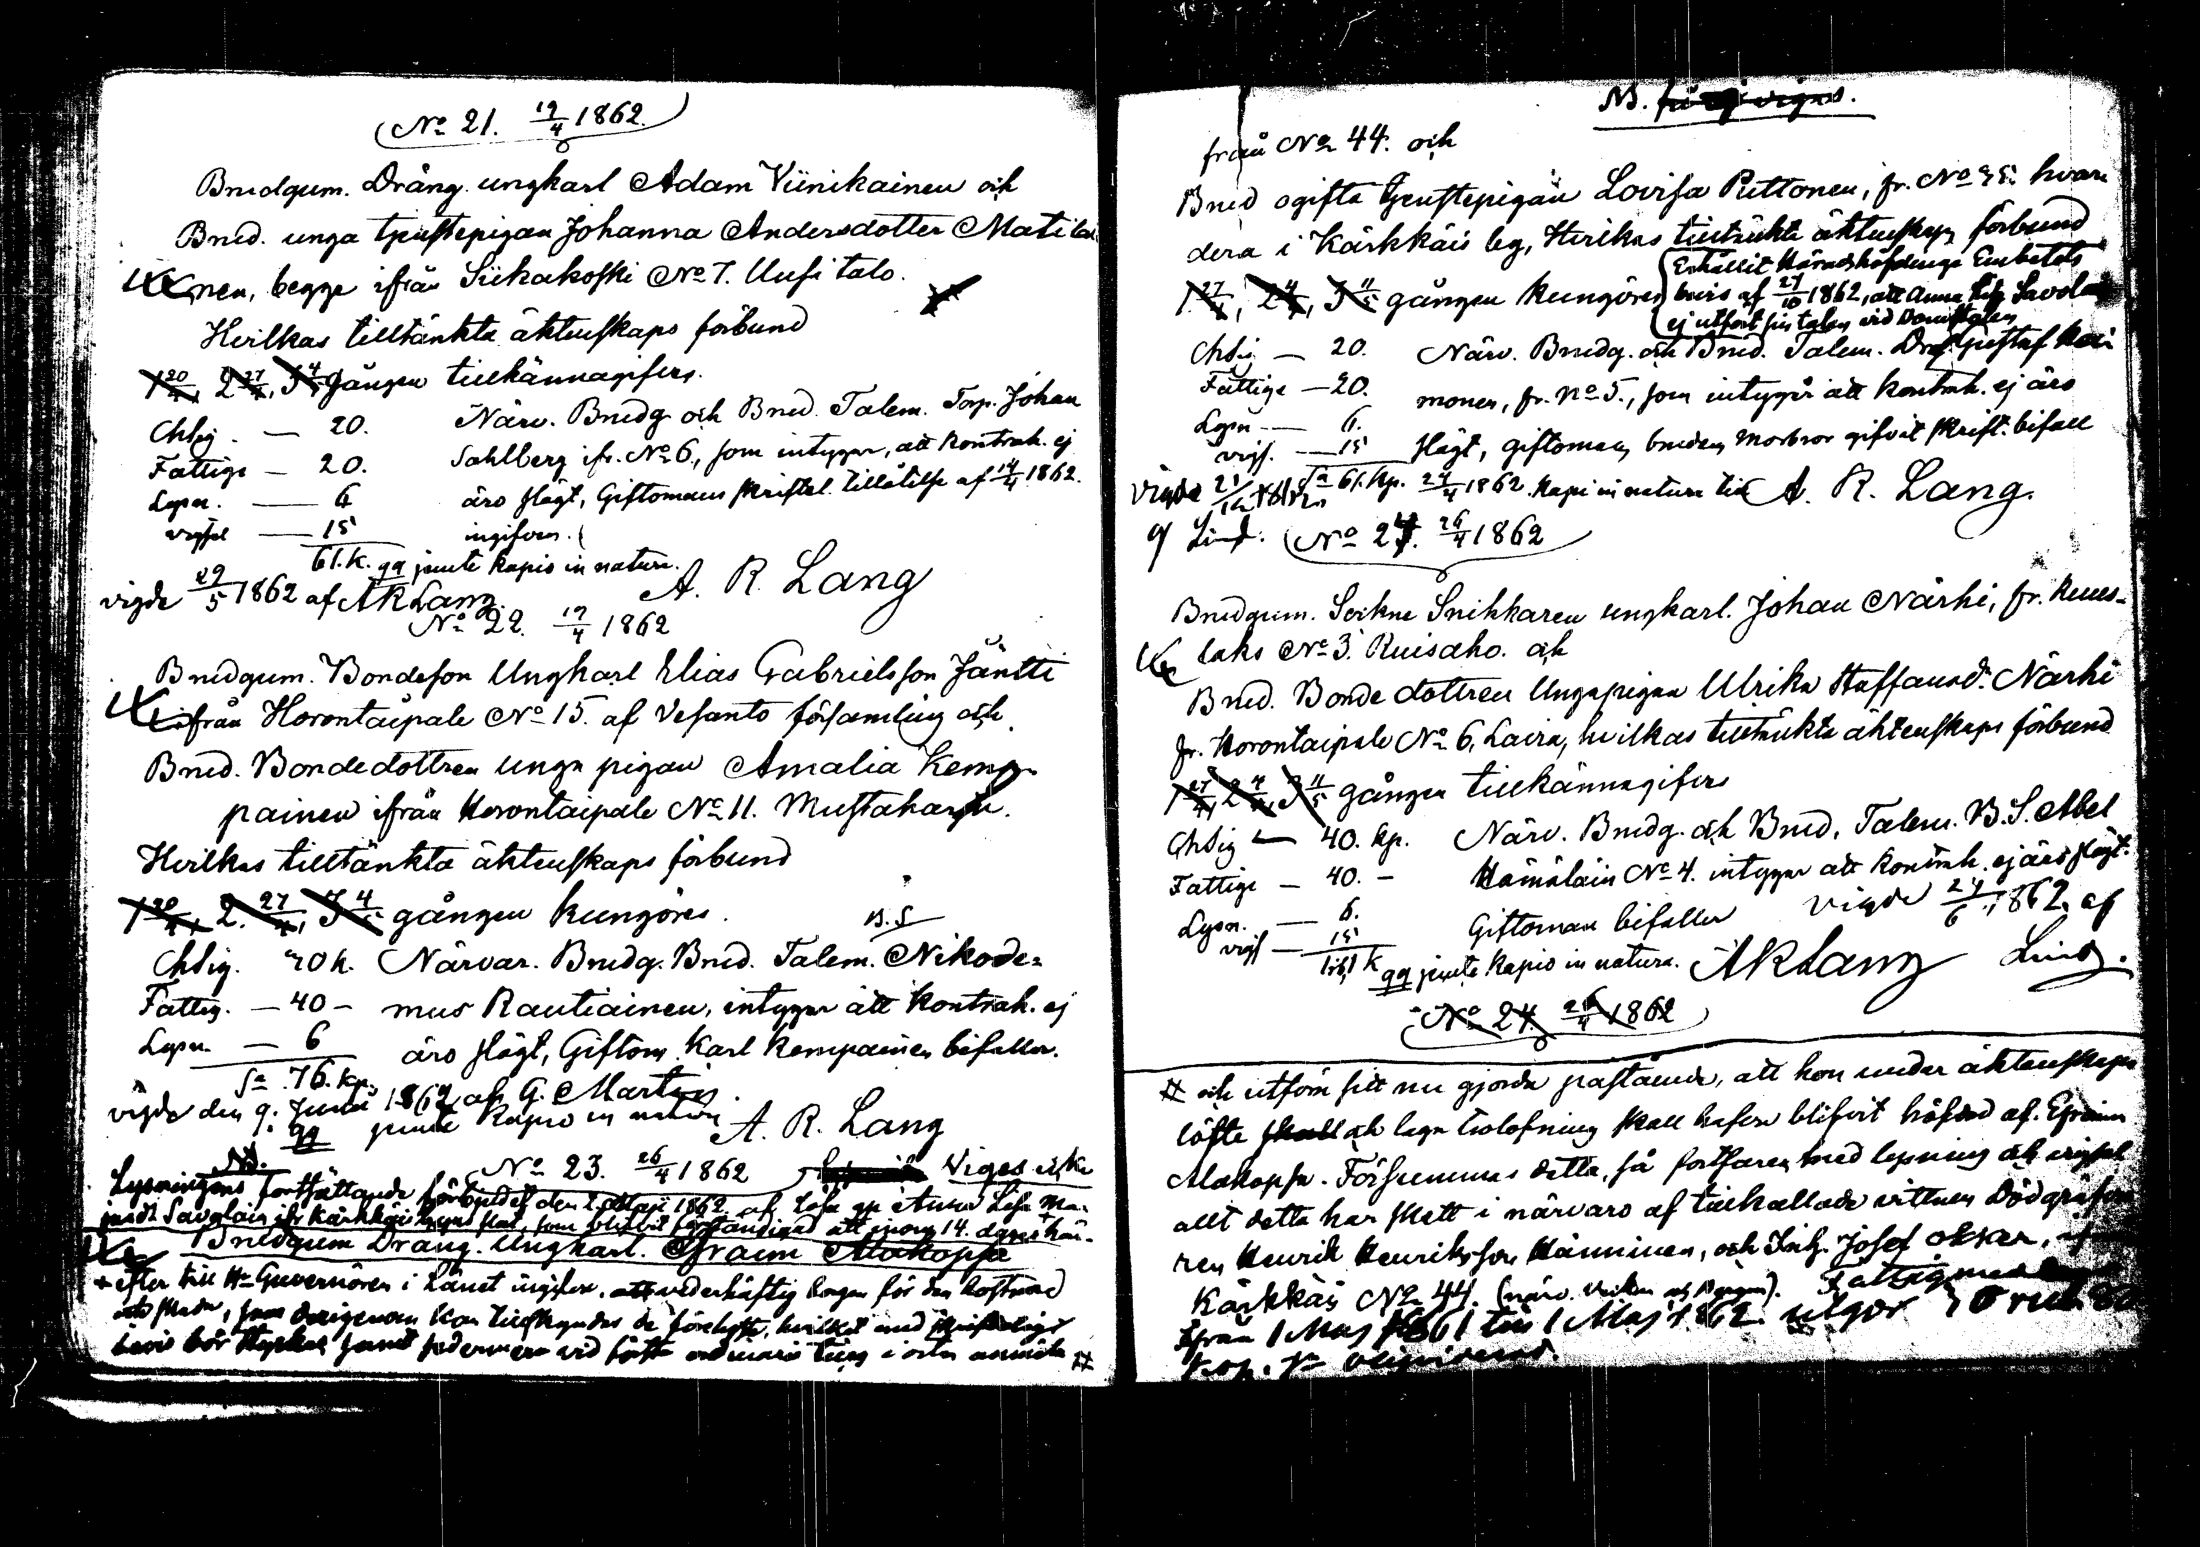 No 21. 19/4 1862.
Brudgum. Dräng. ungkarl Adam Viinikainen och
Brud. unga tjenstepigan Johanna Andersdotter Matilai
nen, begge ifrån Siikakoski No 7. Uusi talo.
Hvilkas tilltänkta äktenskaps förbund
1 20/4, 2 27/4, 3 4/5 gången tillkännagifves.
Chsig. — 20. Närv. Brudg. och Brud. Talem. Torp. Johan
Fattige — 20. Sahlberg ifr. No 6, som intygar, att kontrah. ej
Lysn. — 6 äro slägt, Giftomans skriftel. tillåtelse af 14/4 1862.
vigsel — 15 ingifven.
61. k. qq jemte kapio in natura. A. R. Lang
vigde 29/5 1862 af AR Lang.
No 22. 19/4 1862
Brudgum. Bondeson Ungkarl Elias Gabrielsson Jäntti
från Horontaipale No 15. af Vesanto församling och
Brud. Bondedottren unga pigan Amalia Kemp-
painen ifrån Horontaipale No 11. Mustaharju.
Hvilkas tilltänkta äktenskaps förbund
1 20/4, 2. 27/4, 3 4/5 gången kungöres. B. S
Chsig. 30 k. Närvar. Brudg. Brud. Talem. Nikode-
Fattig. — 40 — mus Rautiainen, intygar att kontrah. ej
Lysn. — 6 äro slägt, Giftom. Karl Kemppainen bifaller.
Sa. 76. kp.
vigde den 9. Juni 1862 af G. Martin.
qq jemte kapio in natura A. R. Lang
No 23. 26/4 1862 Viges icke
NB.
Lysningens fortsättande förbjudet den 2 Maji 1862 af Lösa qp Anna Lisa Ma-
Savolain ifr Kärkkäis hyns som blifvit förständigad att inom 14. dagar här-
Brudgum Dräng. Ungkarl. Efraim Makopsa
+ efter till Hr Guvernören i Länet ingifva vederhäftig borgen för den kostnad
och skada, som derigenom kan tillskyndas de förelyste, hvilket med
bevis bör styrkas samt sedermera vid första ordinarie ting i orten anmäla #
NB. får ej vigas.
från No 44. och
Brud ogifta tjenstepigan Lovisa Puttonen, fr. No hvar
dera i Kärkkäis by, Hvilkas tilltänkta äktenskaps förbund
1 27/4, 2 4/5, 3 11/5 gången kungöres
Erhållit Häradshöfdinge Embetets
bevis af 27/10 1862, att Anna Lisa Savolai
ej utfört sin talan vid Domstolen
Chsig — 20. Närv. Brudg. och Brud. Talem. Gustaf
Fattige — 20. monen, fr. No 5., som intygar att kontrah. ej äro
Lysn — 6. slägt, giftoman, brudens Morbror gifvit skrift. bifall
vigs. — 15
Sa 61. kp. 24/4 1862. kapio in natura A. R. Lang.
vigde 21/12 1862
af Lind. No 23. 26/4 1862
Brudgum. Sockne Snikkaren ungkarl. Johan Närhi, fr. Kuus-
laks No 3. Ruisaho. och
Brud. Bonde dottren Unga pigan Ulrika Staffansd. Närhi
fr. Horontaipale No 6, Laira, hvilkas tilltänkta äktenskaps förbund
1 27/4, 2 4/5, 3 11/5 gången tillkännagifves
Chsig — 40. kp. Närv. Brudg. och Brud. Talem. B. S. Abel
Fattige — 40. — Hämäläin No 4. intygar att kontrah. ej äro slägt.
Lysn. — 6. Giftoman bifaller vigde 24/6 1862. af
vigs — 15
k qq jemte kapio in natura. AR Lang Lind.
No 24. 26/4 1862
# och utföra sitt nu gjorda påstående, att hon under äktenskaps
löfte och laga trolofning skall hafva blifvit häfdad af. Efraim
Makopsa. Försummas detta, så fortfares med lysning och vigsel
allt detta har skett i närvaro af tillkallade vittnen Dödgräfva
ren Henrik Henriksson Hänninen, och Inh. Josef
Kärkkäis No 44.
från 1 Maj 1861 till 1 Maj 1862. utgör